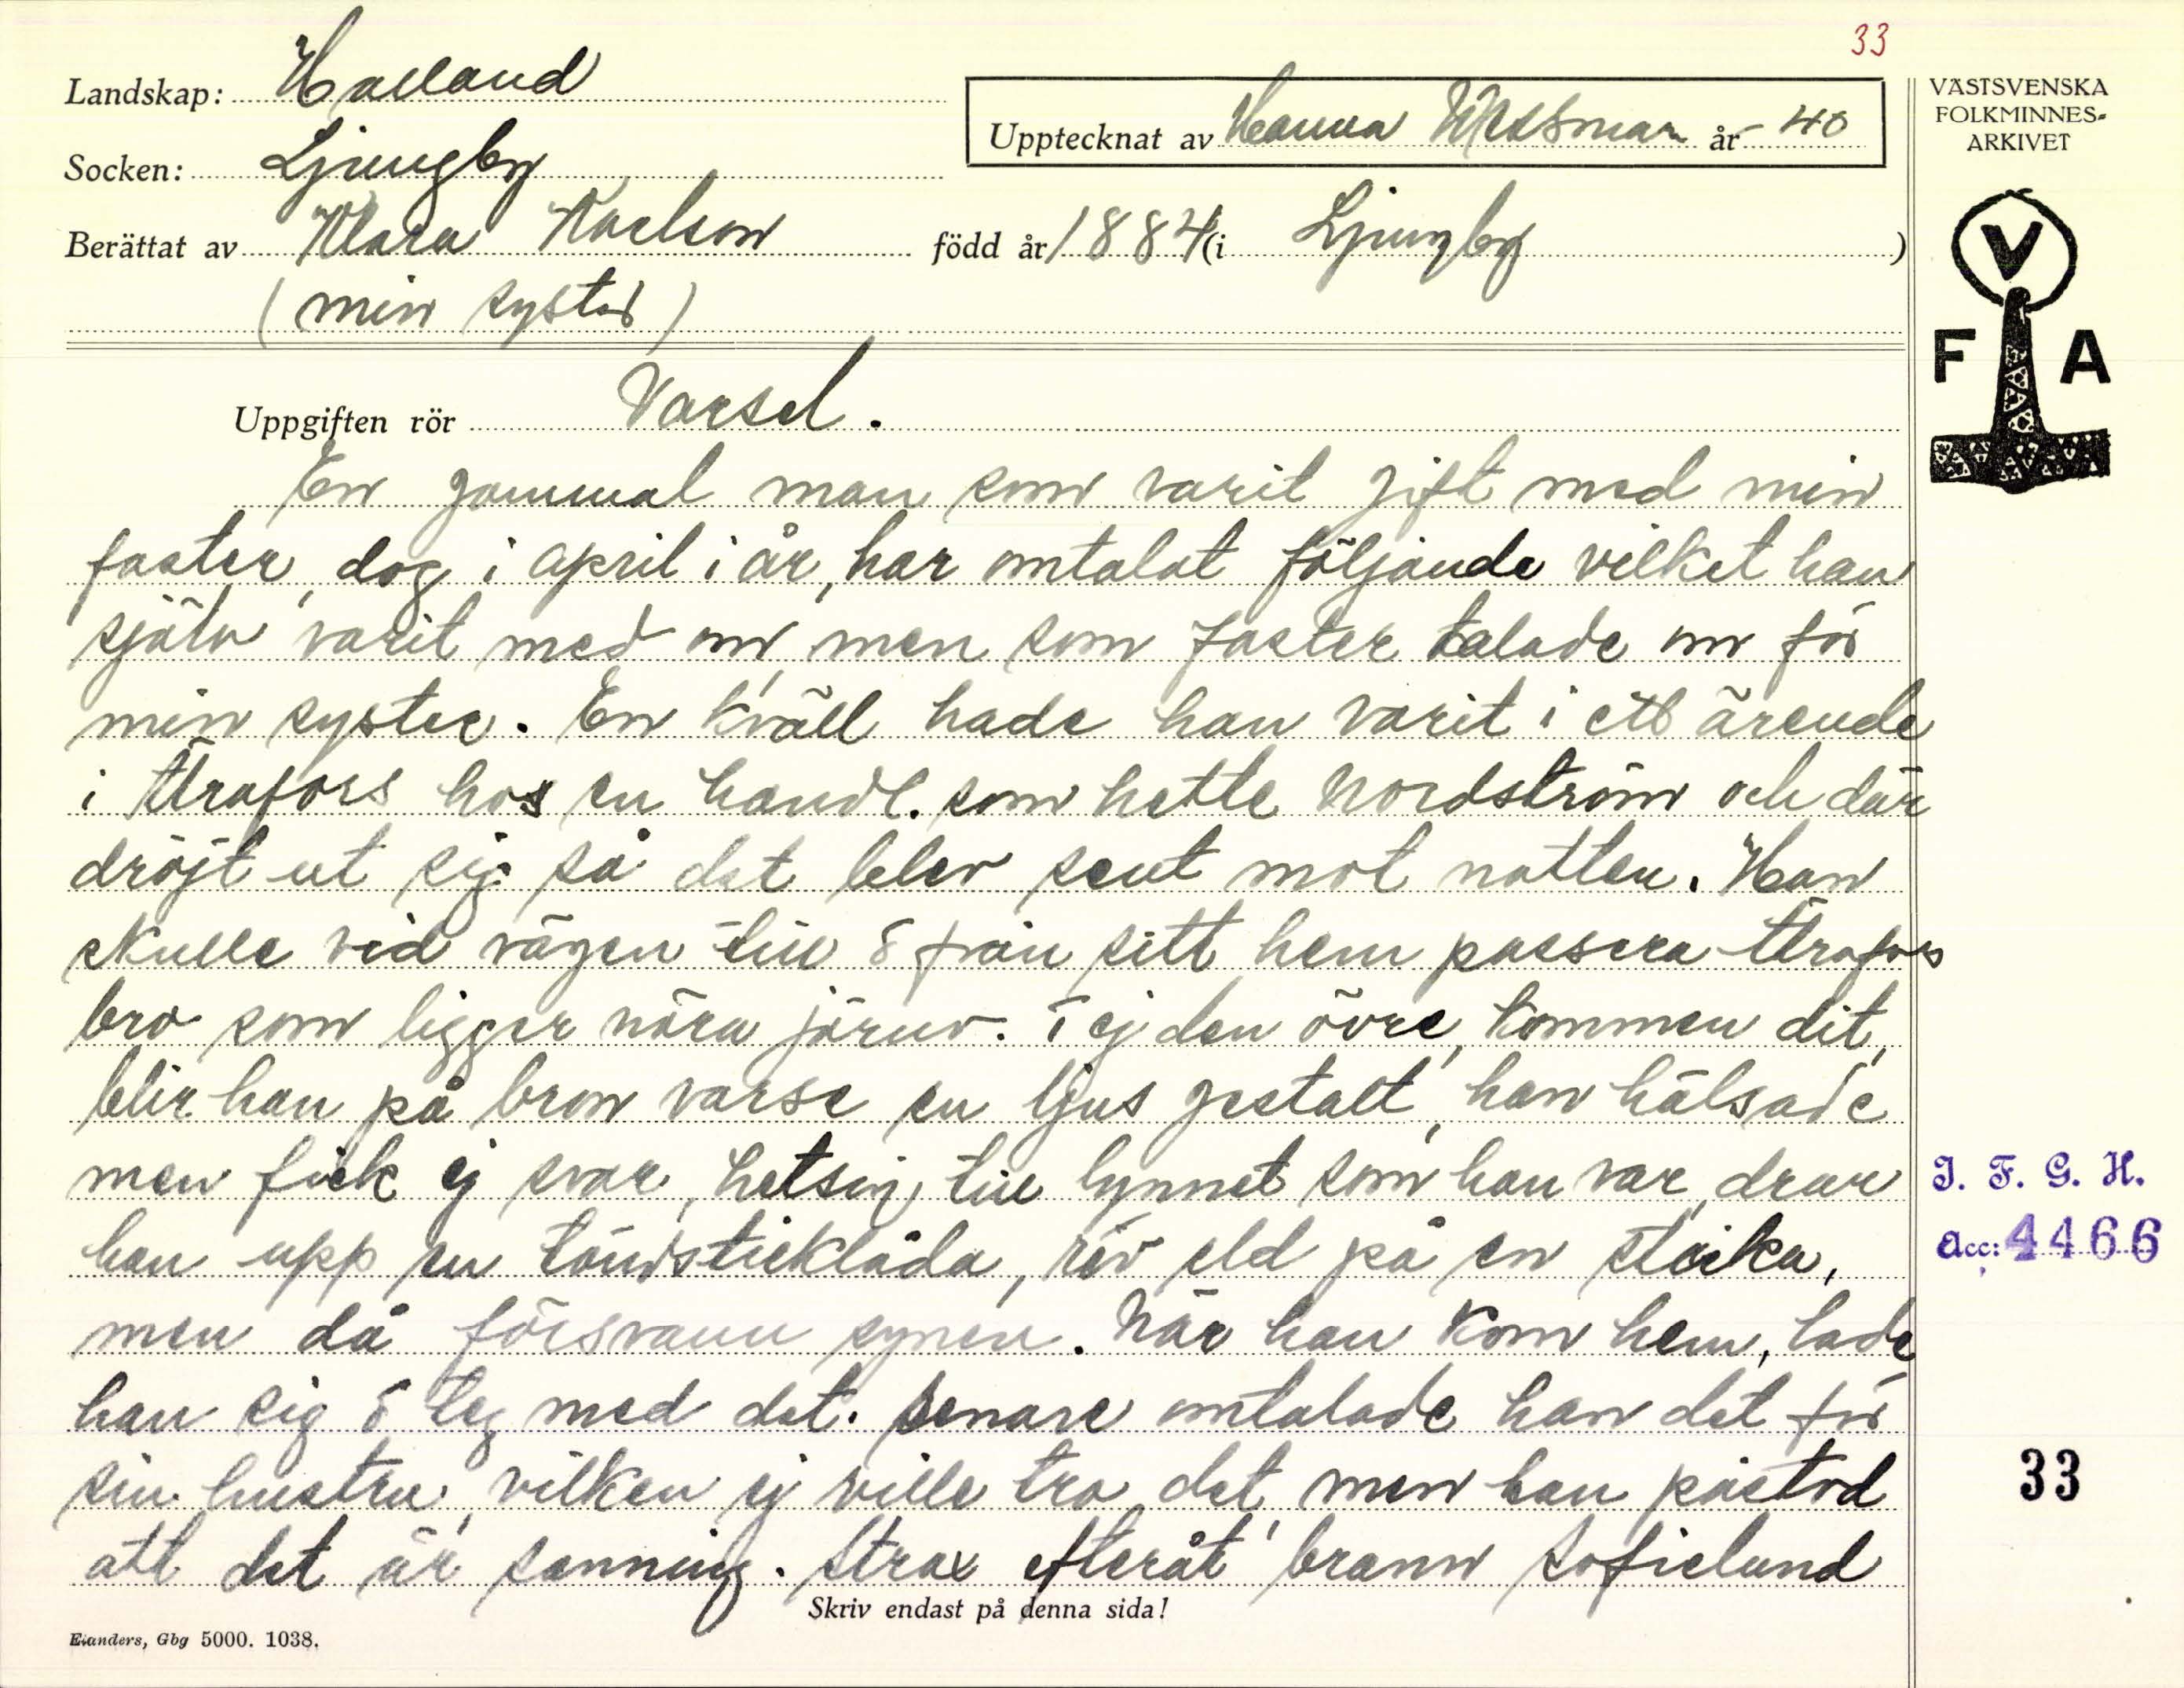 33
Landskap: Halland
Upptecknat av Hanna Wessman år -40
Socken: Ljungby
Berättat av Klara Karlson född år 1884 (i Ljungby)
(min syster)
Uppgiften rör Varsel.
En gammal man som varit gift med min
faster, dog i april i år, har omtalat följande vilket han
själv varit med om, men som faster talade om för
min syster. En kväll hade han varit i ett ärende
i Ätrafors hos en handl. som hette Nordström och där
dröjt ut sig så det blev sent mot natten. Han
skulle vid vägen till o från sitt hem passera Ätrafors
bro som ligger nära järnv. i ej den övre, kommen dit,
blir han på bron varse en ljus gestalt, han hälsade
men fick ej svar, hetsig till lynnet som han var, drar
han upp en tändsticklåda, rev eld på en sticka,
men då försvann synen. När han kom hem, lade
han sig o teg med det. Senare omtalade han det för
sin hustru, vilken ej ville tro det, men han påstod
att det är sanning. Strax efteråt brann Sofielund
Skriv endast på denna sida!
Elanders, Gbg 5000. 1038.
VÄSTSVENSKA
FOLKMINNES-
ARKIVET
V
F A
I. F. G. H.
Acc: 4466
33